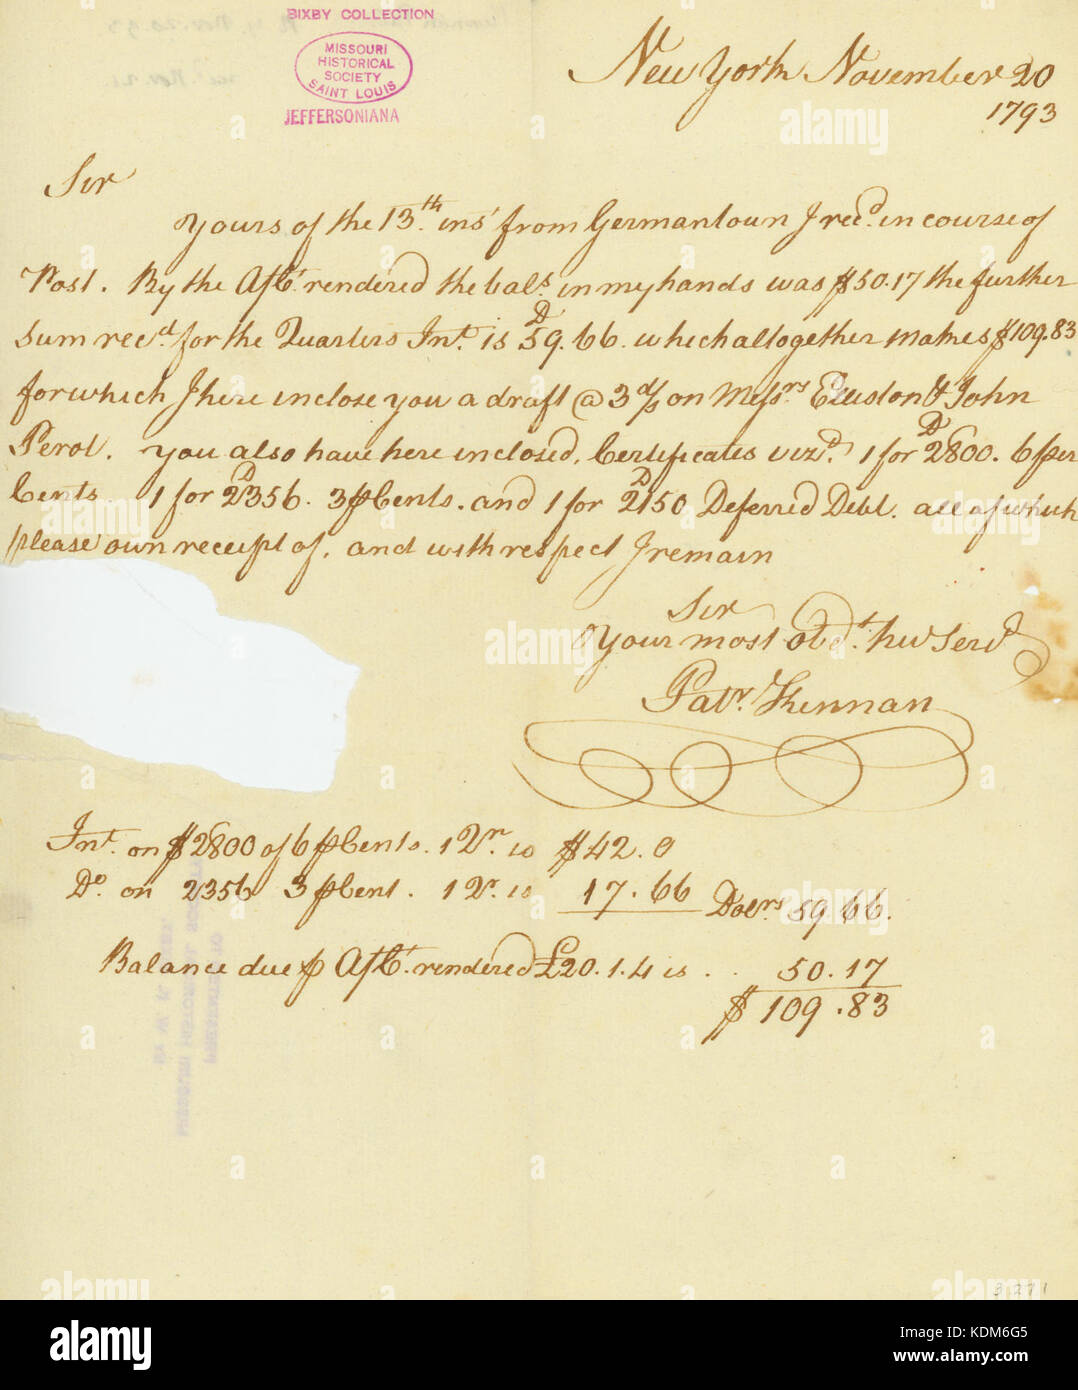 BIXBY COLLECTION
MISSOURI
HISTORICAL
SOCIETY
SAINT LOUIS
JEFFERSONIANA
New York November 20
1793
Sir
Yours of the 13th. inst from Germantown I recd. in course of
Post. By the Acct. rendered the bale. in my hands was $50.17 the further
sum recd. for the Quarters Int. is D 59.66. which altogether makes $109.83
for which I here inclose you a draft @ 3 d/s on Messrs. Elliston & John
Perot. you also have here inclosed, Certificates vizd. 1 for D 2800. 6 per
Cents. 1 for D 2356. 3 p Cents. and 1 for D 2150 Deferred Debt. all of which
please own receipt of, and with respect I remain
Sir
Your most obdt. hu Servt
Patr. Kennan
Int. on $2800 of 6 p Cents. 1 Qr. is $42.0
Do. on 2356 3 p Cent. 1 Qr. is 17.66 Dolrs. 59 66.
Balance due p Acct. rendered £20.1.4 is . . 50.17
$ 109.83
3271
alamy
KDM6G5
www.alamy.com